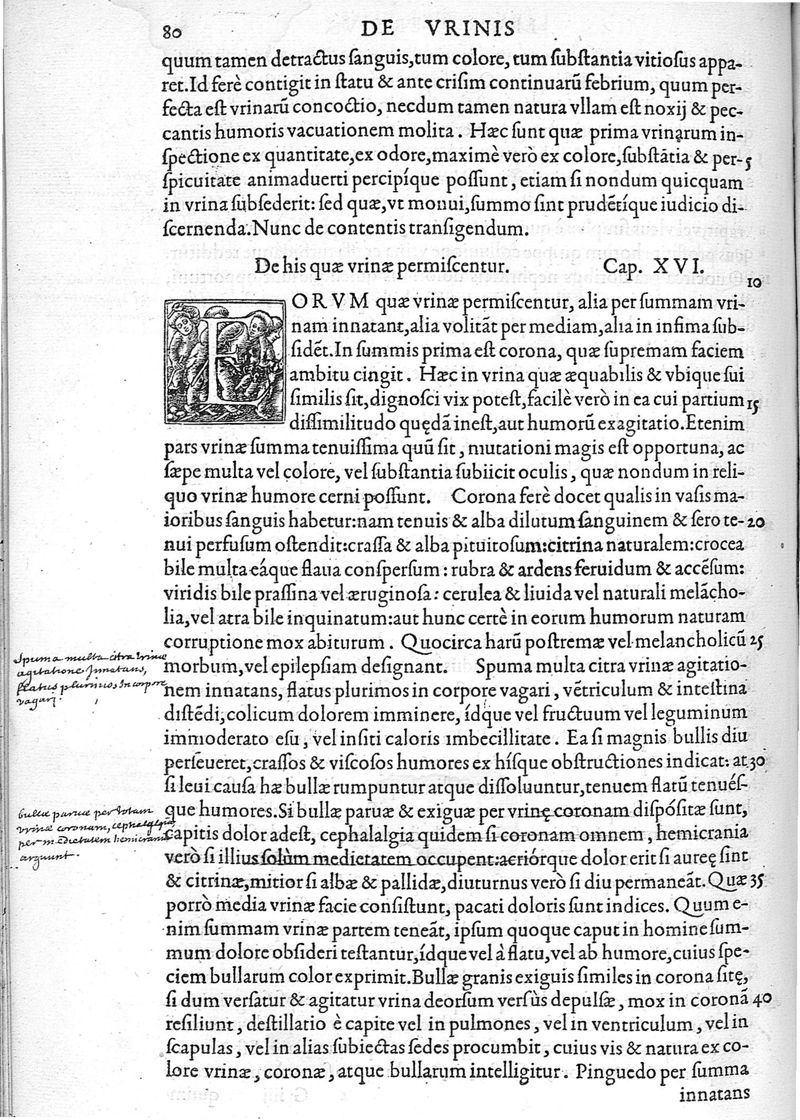 80
DE VRINIS
quum tamen detractus ſanguis,tum colore, tum ſubſtantia vitioſus appa-
ret.Id ferè contigit in ſtatu & ante criſim continuarũ febrium, quum per-
fecta eſt vrinarũ concoctio, necdum tamen natura vllam eſt noxij & pec-
cantis humoris vacuationem molita. Hæc ſunt quæ prima vrinarum in-
ſpectione ex quantitate,ex odore,maximè verò ex colore,ſubſtãtia & per- 5
ſpicuitate animaduerti percipíque poſſunt, etiam ſi nondum quicquam
in vrina ſubſederit: ſed quæ,vt monui,ſummo ſint prudẽtíque iudicio di-
ſcernenda.Nunc de contentis tranſigendum.
De his quæ vrinæ permiſcentur. Cap. XVI.
10
EORVM quæ vrinæ permiſcentur, alia per ſummam vri-
nam innatant,alia volitãt per mediam,alia in infima ſub-
ſidẽt.In ſummis prima eſt corona, quæ ſupremam faciem
ambitu cingit. Hæc in vrina quæ æquabilis & vbique ſui
ſimilis ſit,dignoſci vix poteſt,facilè verò in ea cui partium 15
diſſimilitudo quędã ineſt,aut humorũ exagitatio.Etenim
pars vrinæ ſumma tenuiſſima quũ ſit, mutationi magis eſt opportuna, ac
ſæpe multa vel colore, vel ſubſtantia ſubiicit oculis, quæ nondum in reli-
quo vrinæ humore cerni poſſunt. Corona ferè docet qualis in vaſis ma-
ioribus ſanguis habetur:nam tenuis & alba dilutum ſanguinem & ſero te- 20
nui perfuſum oſtendit:craſſa & alba pituitoſum:citrina naturalem:crocea
bile multa eáque flaua conſperſum: rubra & ardens feruidum & accẽſum:
viridis bile praſſina vel æruginoſa: cerulea & liuida vel naturali melãcho-
lia,vel atra bile inquinatum:aut hunc certè in eorum humorum naturam
corruptione mox abiturum. Quocirca harũ poſtremæ vel melancholicũ 25
morbum,vel epilepſiam deſignant. Spuma multa citra vrinæ agitatio-
nem innatans, flatus plurimos in corpore vagari, vẽtriculum & inteſtina
diſtẽdi,colicum dolorem imminere, ídque vel fructuum vel leguminum
immoderato eſu, vel inſiti caloris imbecillitate. Ea ſi magnis bullis diu
perſeueret,craſſos & viſcoſos humores ex híſque obſtructiones indicat: at 30
ſi leui cauſa hæ bullæ rumpuntur atque diſſoluuntur,tenuem flatũ tenuéſ-
que humores.Si bullæ paruæ & exiguæ per vrinę coronam diſpóſitæ ſunt,
capitis dolor adeſt, cephalalgia quidem ſi coronam omnem, hemicrania
verò ſi illius ſolùm medietatem occupent:acriórque dolor erit ſi aureę ſint
& citrinæ,mitior ſi albæ & pallidæ,diuturnus verò ſi diu permaneãt. Quæ 35
porrò media vrinæ facie conſiſtunt, pacati doloris ſunt indices. Quum e-
nim ſummam vrinæ partem teneãt, ipſum quoque caput in homine ſum-
mum dolore obſideri teſtantur,ídque vel à flatu,vel ab humore,cuius ſpe-
ciem bullarum color exprimit.Bullæ granis exiguis ſimiles in corona ſitę,
ſi dum verſatur & agitatur vrina deorſum verſùs depulſæ, mox in coronã 40
reſiliunt, deſtillatio è capite vel in pulmones, vel in ventriculum, vel in
ſcapulas, vel in alias ſubiectas ſedes procumbit, cuius vis & natura ex co-
lore vrinæ, coronæ, atque bullarum intelligitur. Pinguedo per ſumma
innatans
Spuma multa citra vrinæ
agitatione innatans,
flatus plurimos in corpore
vagari.
bullæ paruæ per totam
vrinæ coronam, cephalalgia
per medietatem hemicrania
arguunt.